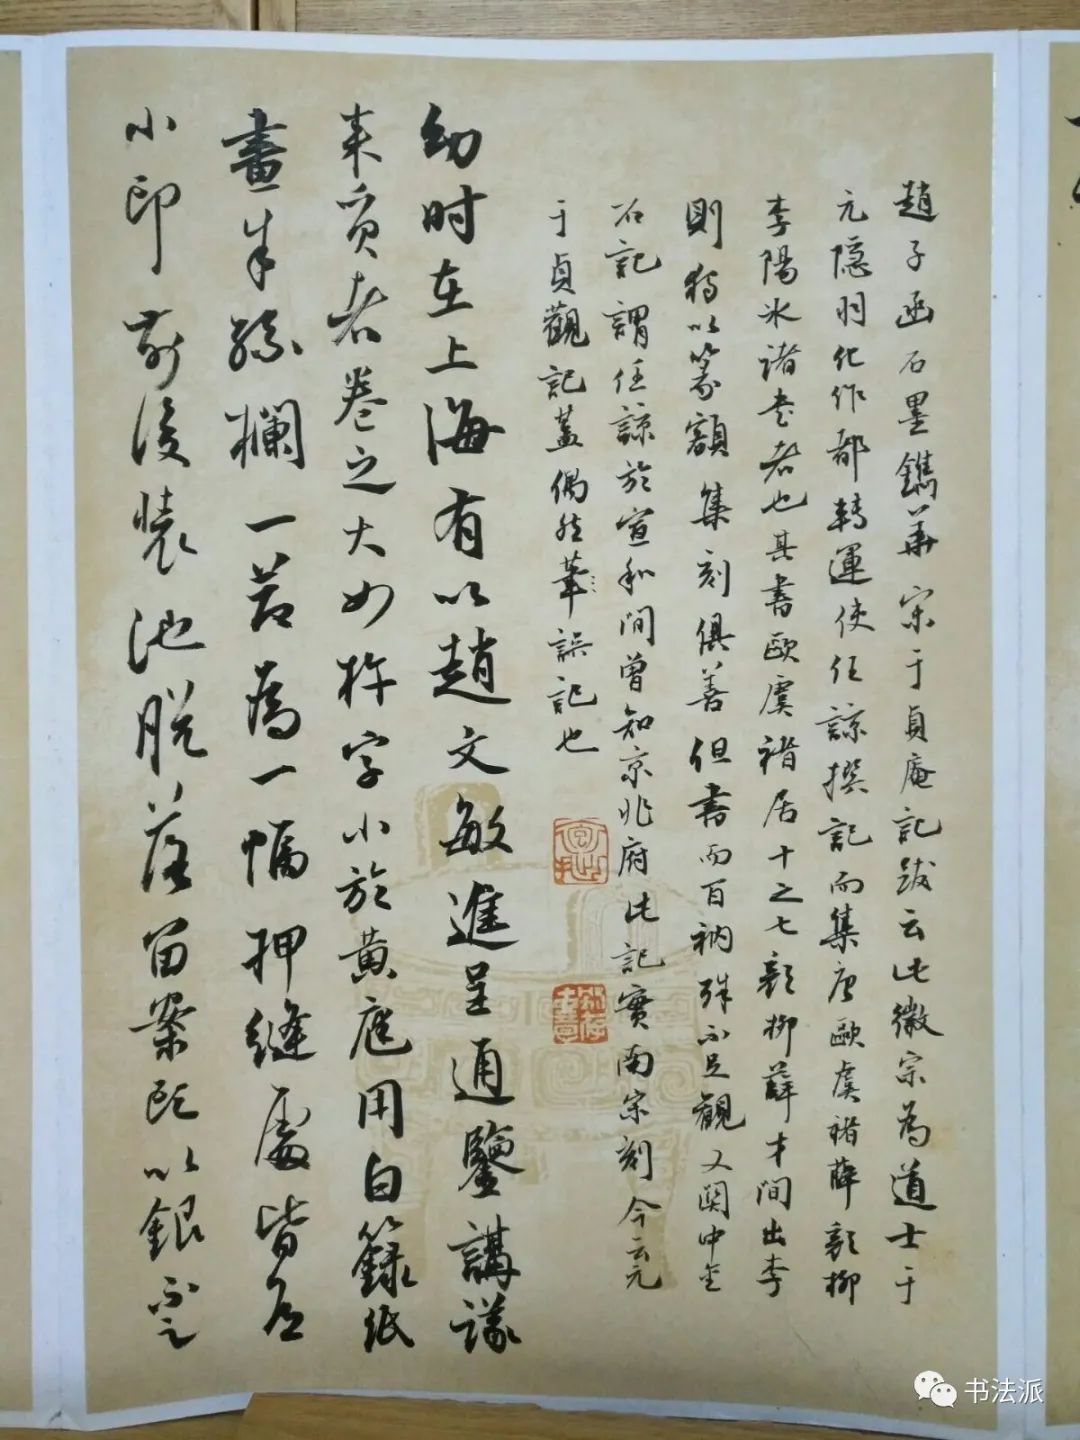 趙子函石墨鐫華宋于真庵記跋云此徽宗為道士于
元隱羽化作都轉運使任諒撰記而集唐歐虞褚薛顏柳
李陽冰諸書者也其書歐虞褚居十之七顏柳薛才間出李
則獨以篆額集刻俱善但書而百衲殊不足觀又關中金
石記謂任諒於宣和間曾知京兆府此記實南宋刻今云元
于貞觀記蓋偶然筆誤記也
幼时在上海有以趙文敏進呈通鑒講議
来質者卷之大如杵字小於黃庭用白籙纸
畫朱絲欄一若為一幅押縫處皆有
小印前後裝池脱落留案頭以銀不足
书法派